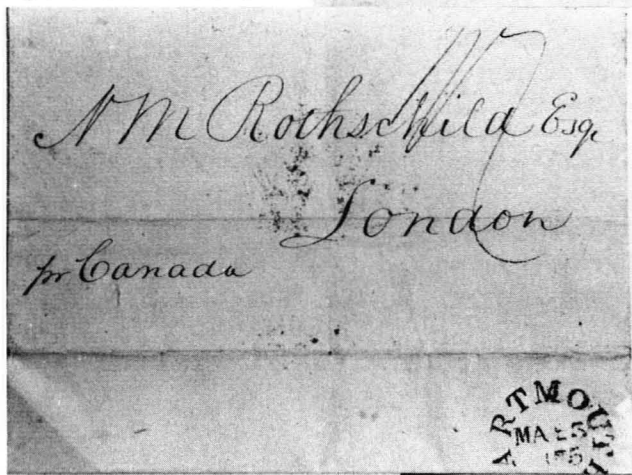 N M Rothschild Esq.
London
pr Canada
ARTMOUT